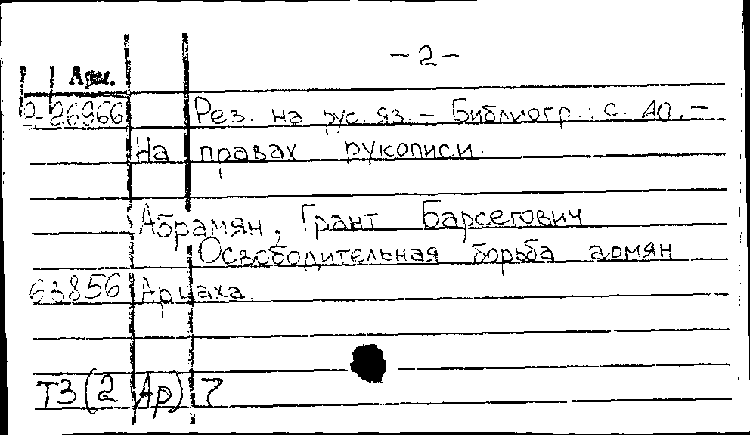 - 2 -
Арм.
2-26966 Рез. на рус. яз. - Библиогр.: с. 40. -
На правах рукописи.
Абрамян, Грант Барсегович
Освободительная борьба армян
63856 Арцаха.
Т3(2Ар)7